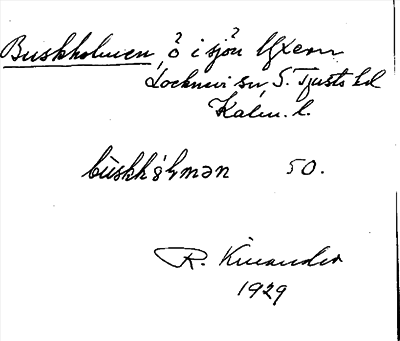 Buskholmen, ö i sjön Yxern
Locknevi sn, S. Tjusts hd
Kalm. l.
bùskhɷ́lmən 50.
R. Kinander
1929